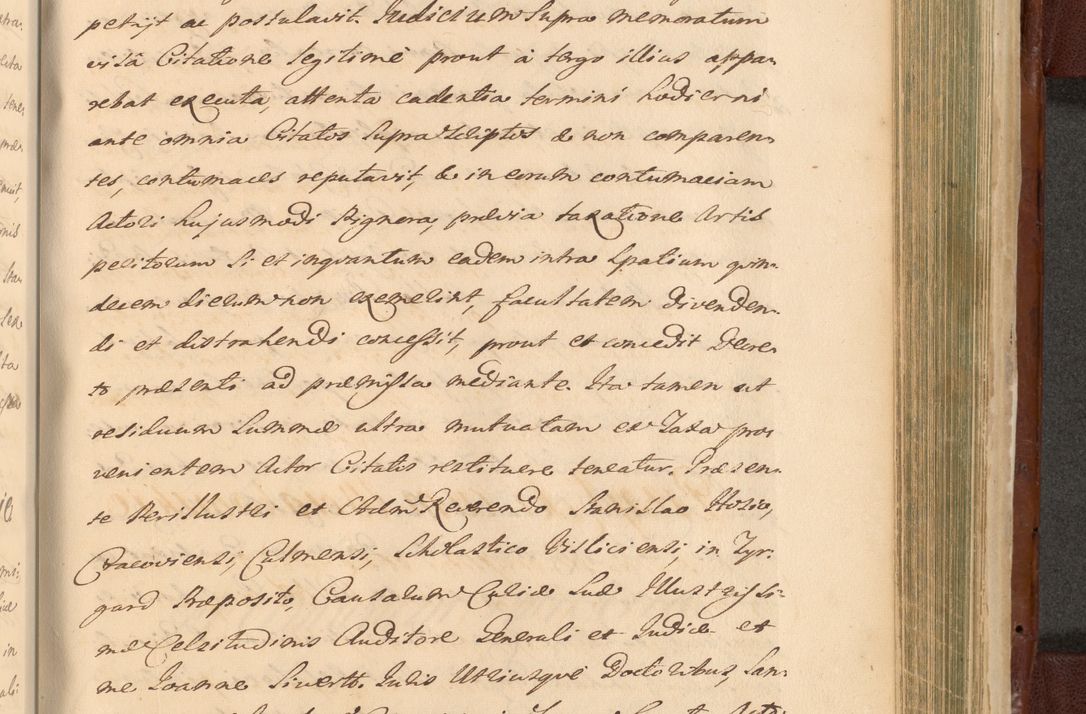 petijt ac postulavit. Judicium Supra memoratum
visâ Citatione legitimè prout à tergo illius appa-
rebat executa, attenta cadentia termini hodierni
ante omnia Citatos Suprascriptos & non comparen-
tes, contumaces reputavit, & in eorum contumaciam
Actori hujusmodi Pignora, prævia taxatione Artis
peritorum Si et inquantum eadem intra Spatium quin-
decem dierum non exemerint, facultatem divenden-
di et distrahendi concessit, prout et concedit Decre-
to præsenti ad præmissa mediante. Ita tamen ut
residuum Summæ ultra mutuatam ex Taxa pro-
venientem Actor Citatis restituere teneatur. Præsen-
te Perillustri et Adm Reverendo Stanislao Hosio,
Cracoviensi, Culmensi, Scholastico Visliciensi, in
gard Præposito, Causarum Curiæ Suæ Illustrissi-
mæ Celsitudinis Auditore Generali et Judice et
me Joanne Siverth Juris Utriusque Doctoribus, San-